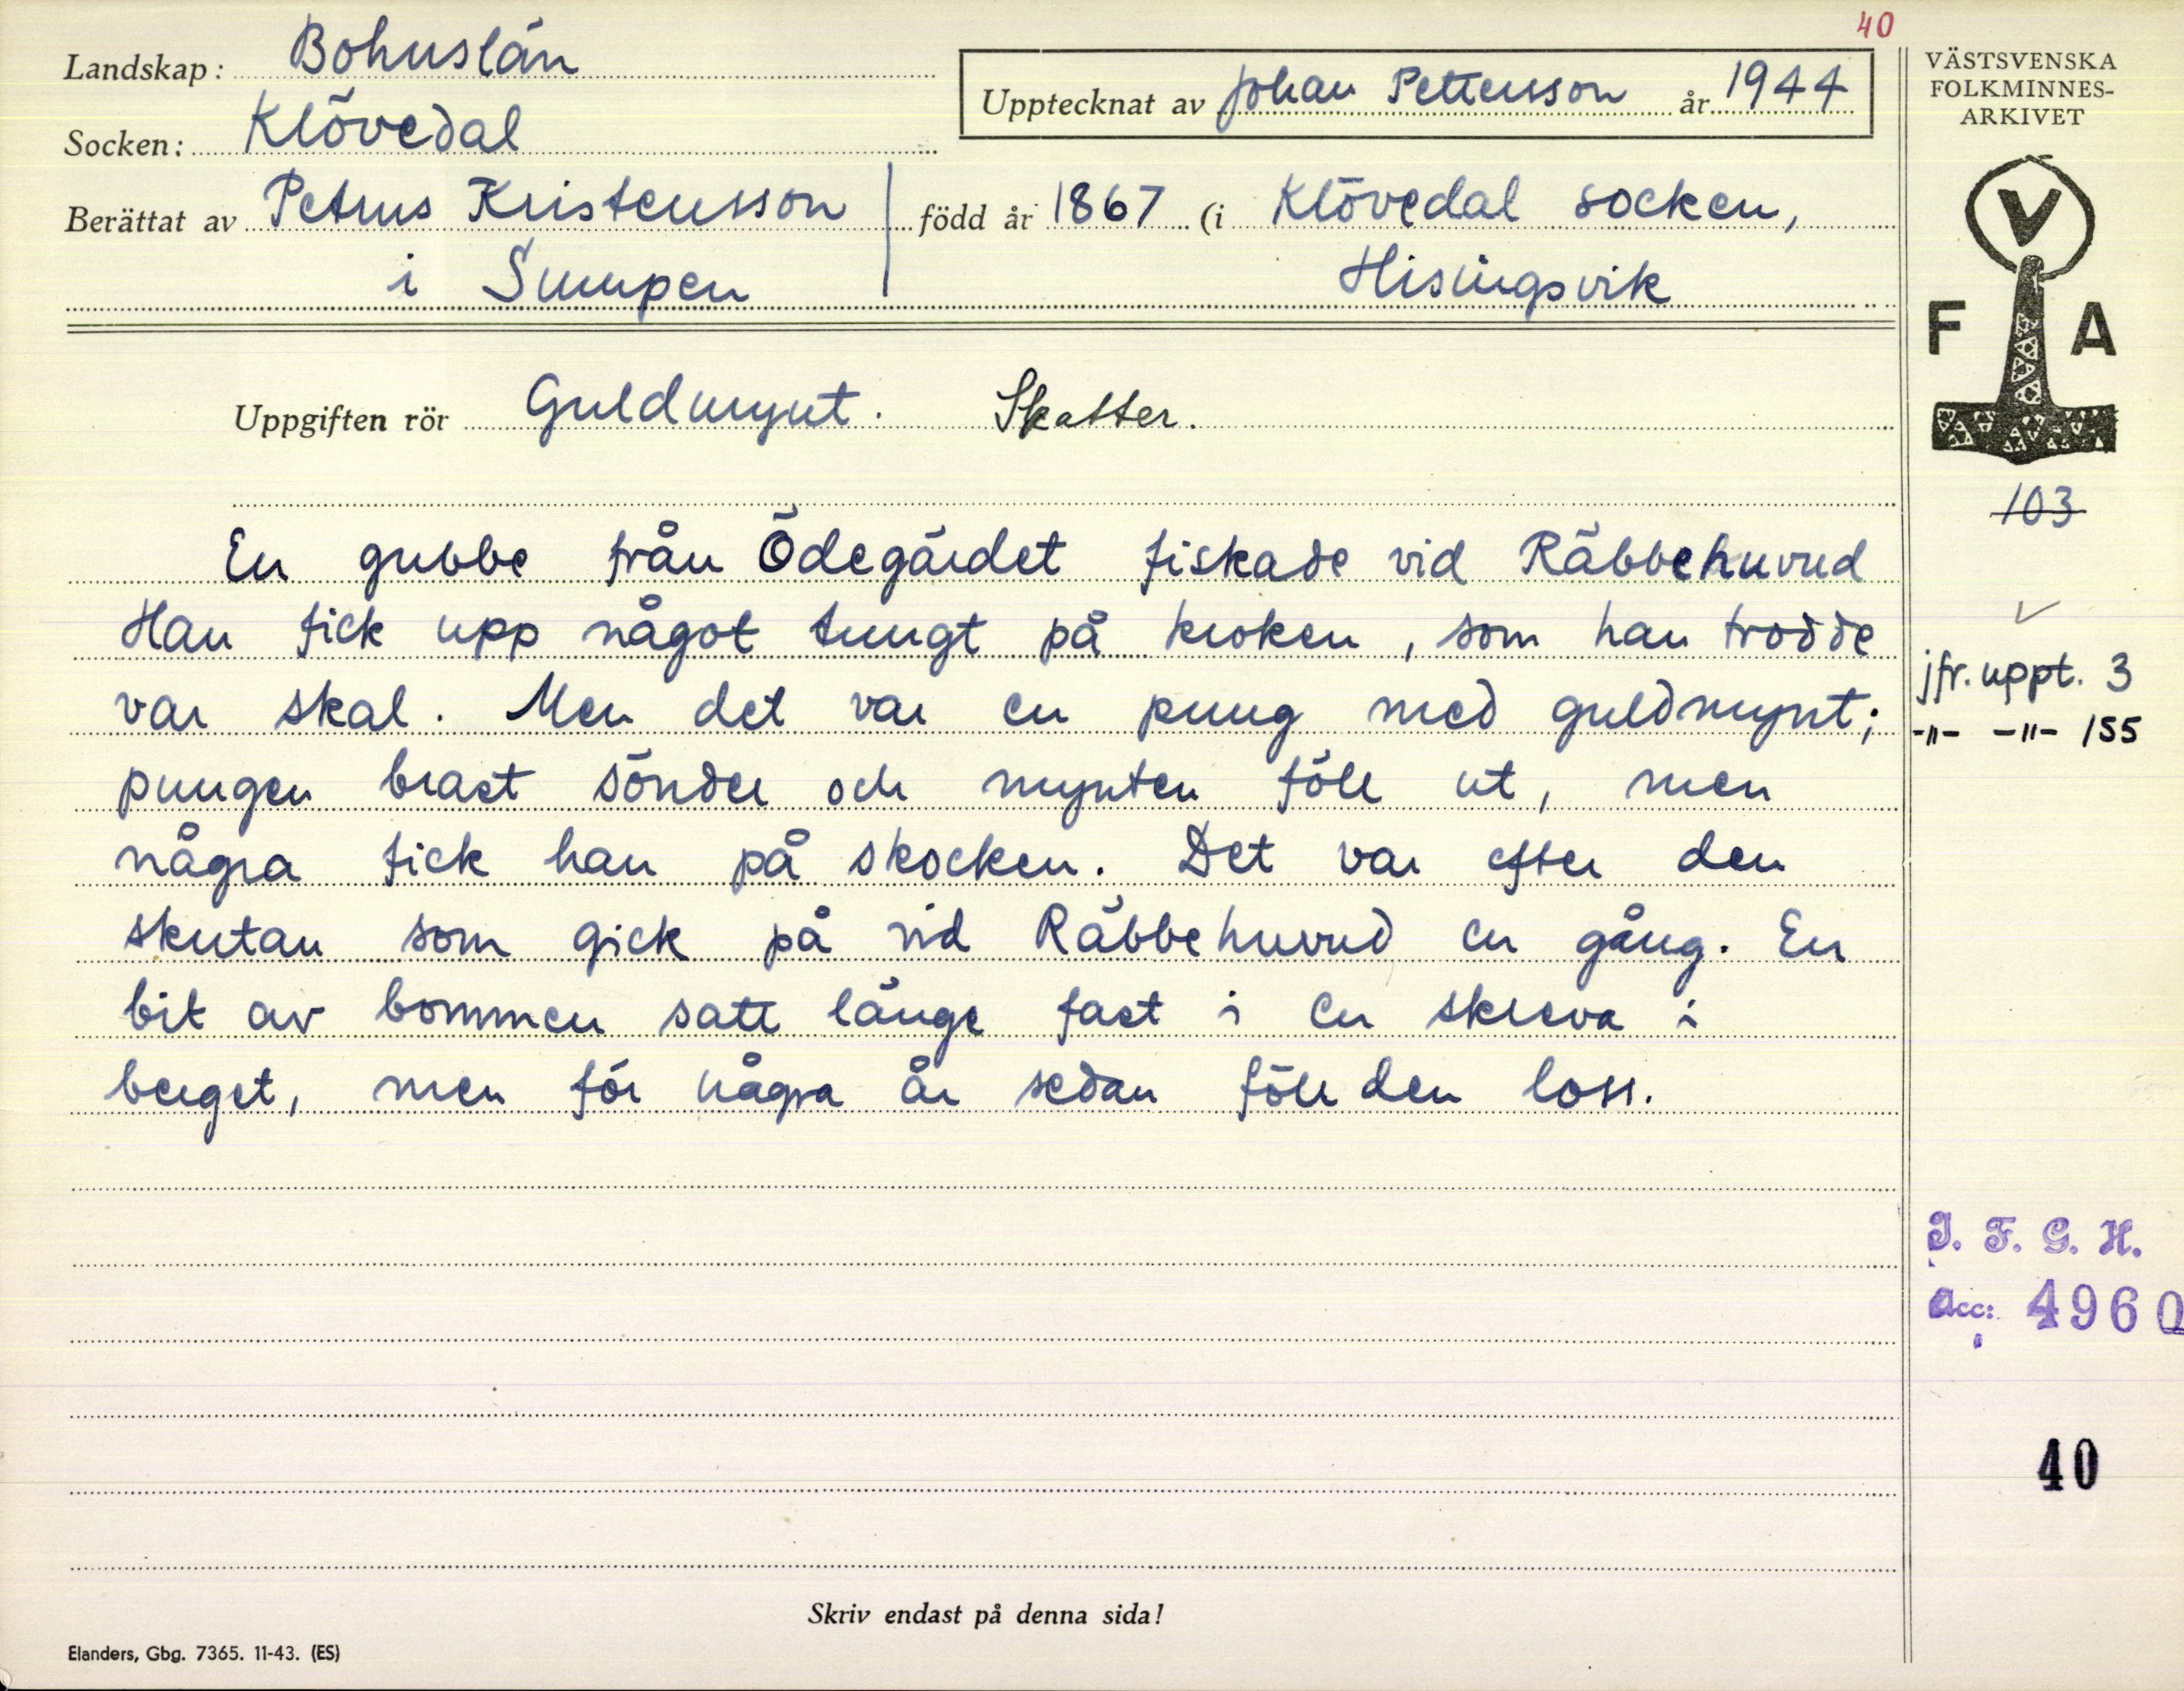 40
Landskap: Bohuslän
Socken: Klövedal
Upptecknat av Johan Pettersson år 1944
Berättat av Petrus Kristensson född år 1867 (i Klövedal socken,
i Sumpen Hisingsvik
VÄSTSVENSKA
FOLKMINNES-
ARKIVET
V
F A
Uppgiften rör Guldmynt. Skatter.
103
En gubbe från Ödegärdet fiskade vid Räbbehuvud
Han fick upp något tungt på kroken, som han trodde
var skal. Men det var en pung med guldmynt;
pungen brast sönder och mynten föll ut, men
några fick han på skocken. Det var efter den
skutan som gick på vid Räbbehuvud en gång. En
bit av bommen satt länge fast i en skreva i
berget, men för några år sedan föll den loss.
jfr. uppt. 3
-"- -"- 155
I. F. G. H.
Acc: 4960
40
Skriv endast på denna sida!
Elanders, Gbg. 7365. 11-43. (ES)